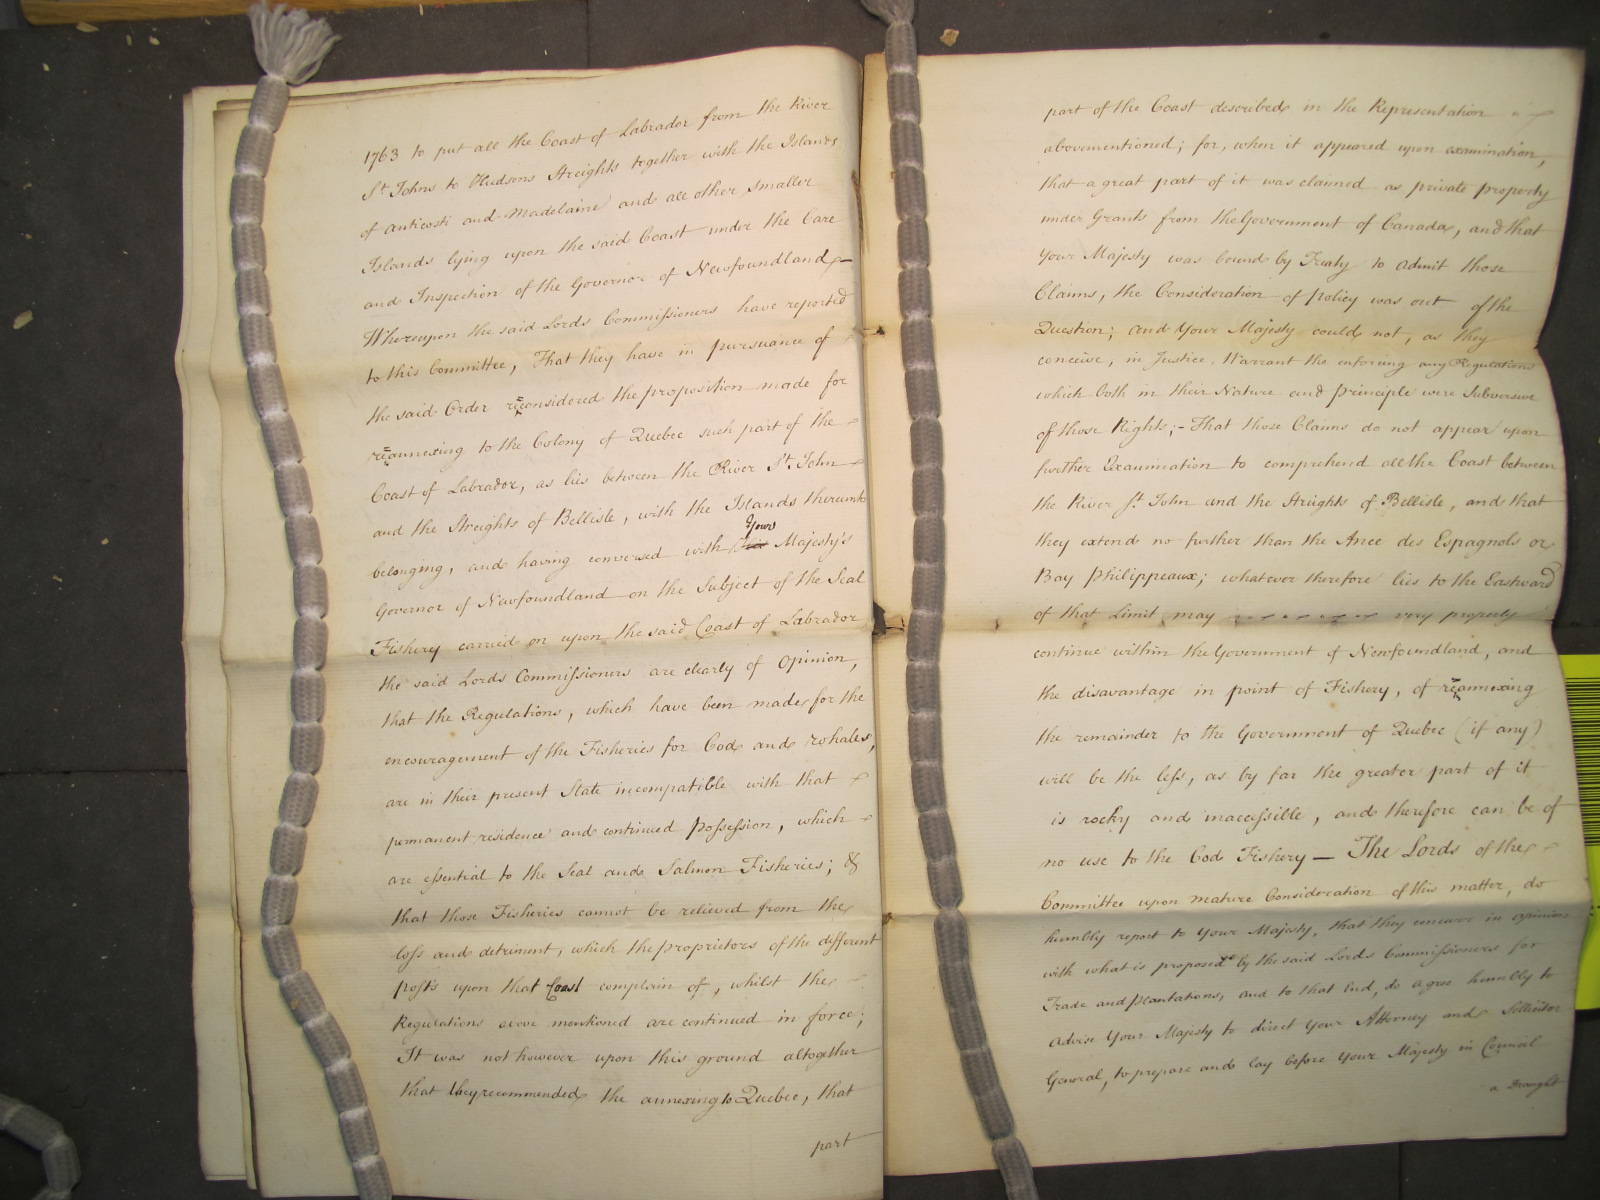 1763 to put all the Coast of Labrador from the River
St. Johns to Hudsons Streights together with the Islands
of Anticosti and Madelaine and all other smaller
Islands lying upon the said Coast under the Care
and Inspection of the Governor of Newfoundland,—
Whereupon the said Lords Commissioners have reported
to this Committee, That they have in pursuance of
the said Order reconsidered the proposition made for
reannexing to the Colony of Quebec such part of the
Coast of Labrador, as lies between the River St. John
and the Streights of Bellisle, with the Islands thereunto
Your
belonging, and having conversed with Majesty's
Governor of Newfoundland on the Subject of the Seal
Fishery carried on upon the said Coast of Labrador
the said Lords Commissioners are clearly of Opinion,
that the Regulations, which have been made for the
encouragement of the Fisheries for Cod and whales,
are in their present State incompatible with that
permanent residence and continued Possession, which
are essential to the Seal and Salmon Fisheries; &
that those Fisheries cannot be relieved from the
loss and detriment, which the proprietors of the different
posts upon that Coast complain of, whilst the
Regulations above mentioned are continued in force;
It was not however upon this ground altogether
that they recommended the annexing to Quebec, that
part
part of the Coast described in the Representation
abovementioned; for, when it appeared upon examination,
that a great part of it was claimed as private property
under Grants from the Government of Canada, and that
Your Majesty was bound by Treaty to admit those
Claims, the Consideration of policy was out of the
Question; and Your Majesty could not, as they
conceive, in Justice, Warrant the enforcing any Regulations
which both in their Nature and principle were Subversive
of those Rights;- That those Claims do not appear upon
further Examination to comprehend all the Coast between
the River St. John and the Streights of Bellisle, and that
they extend no further than the Ance des Espagnols or
Bay Philippeaux; whatever therefore lies to the Eastward
of that Limit may very properly
continue within the Government of Newfoundland, and
the disavantage in point of Fishery, of reannexing
the remainder to the Government of Quebec (if any)
will be the less, as by far the greater part of it
is rocky and inaccessible, and therefore can be of
no use to the Cod Fishery — The Lords of the
Committee upon mature Consideration of this matter, do
humbly report to Your Majesty, that they concurr in opinion
with what is proposed by the said Lords Commissioners for
Trade and Plantations, and to that End, do agree humbly to
Advise Your Majesty to direct Your Attorney and Sollicitor
General, to prepare and lay before Your Majesty in Council
a Draught